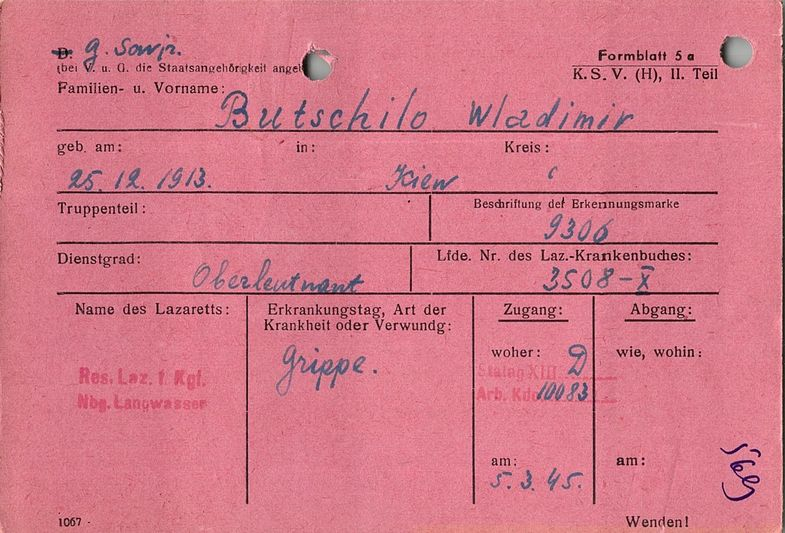 D. g. Sowjr.
(bei V. u. G. die Staatsangehörigkeit angeb
Formblatt 5 a
K. S. V. (H), II. Teil
Familien- u. Vorname:
Butschilo Wladimir
geb. am: in: Kreis:
25. 12. 1913. Kiew "
Truppenteil: Beschriftung der Erkennungsmarke
9306
Dienstgrad: Lfde. Nr. des Laz.-Krankenbuches:
Oberleutnant 3508-X
Name des Lazaretts:
Res. Laz. f. Kgf.
Nbg. Langwasser
Erkrankungstag, Art der
Krankheit oder Verwundg:
Grippe.
Zugang:
woher:
Stalag XIII D
Arb. Kdo 10083
am:
5. 3. 45.
Abgang:
wie, wohin:
am:
1067 -
Wenden!